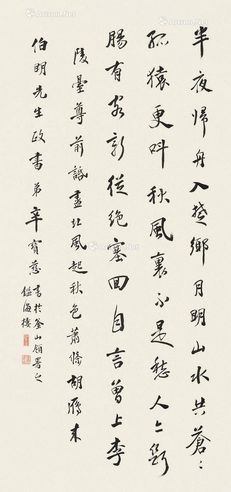 半夜歸舟入楚鄉月明山水共蒼〻
孤猿更叫秋風裏不是愁人亦斷
腸有客新從絕塞回自言曾上李
陵臺尊前語盡北風起秋色蕭條胡雁來
伯明先生政書弟辛寶慈書於釜山領署之
鑑海樓